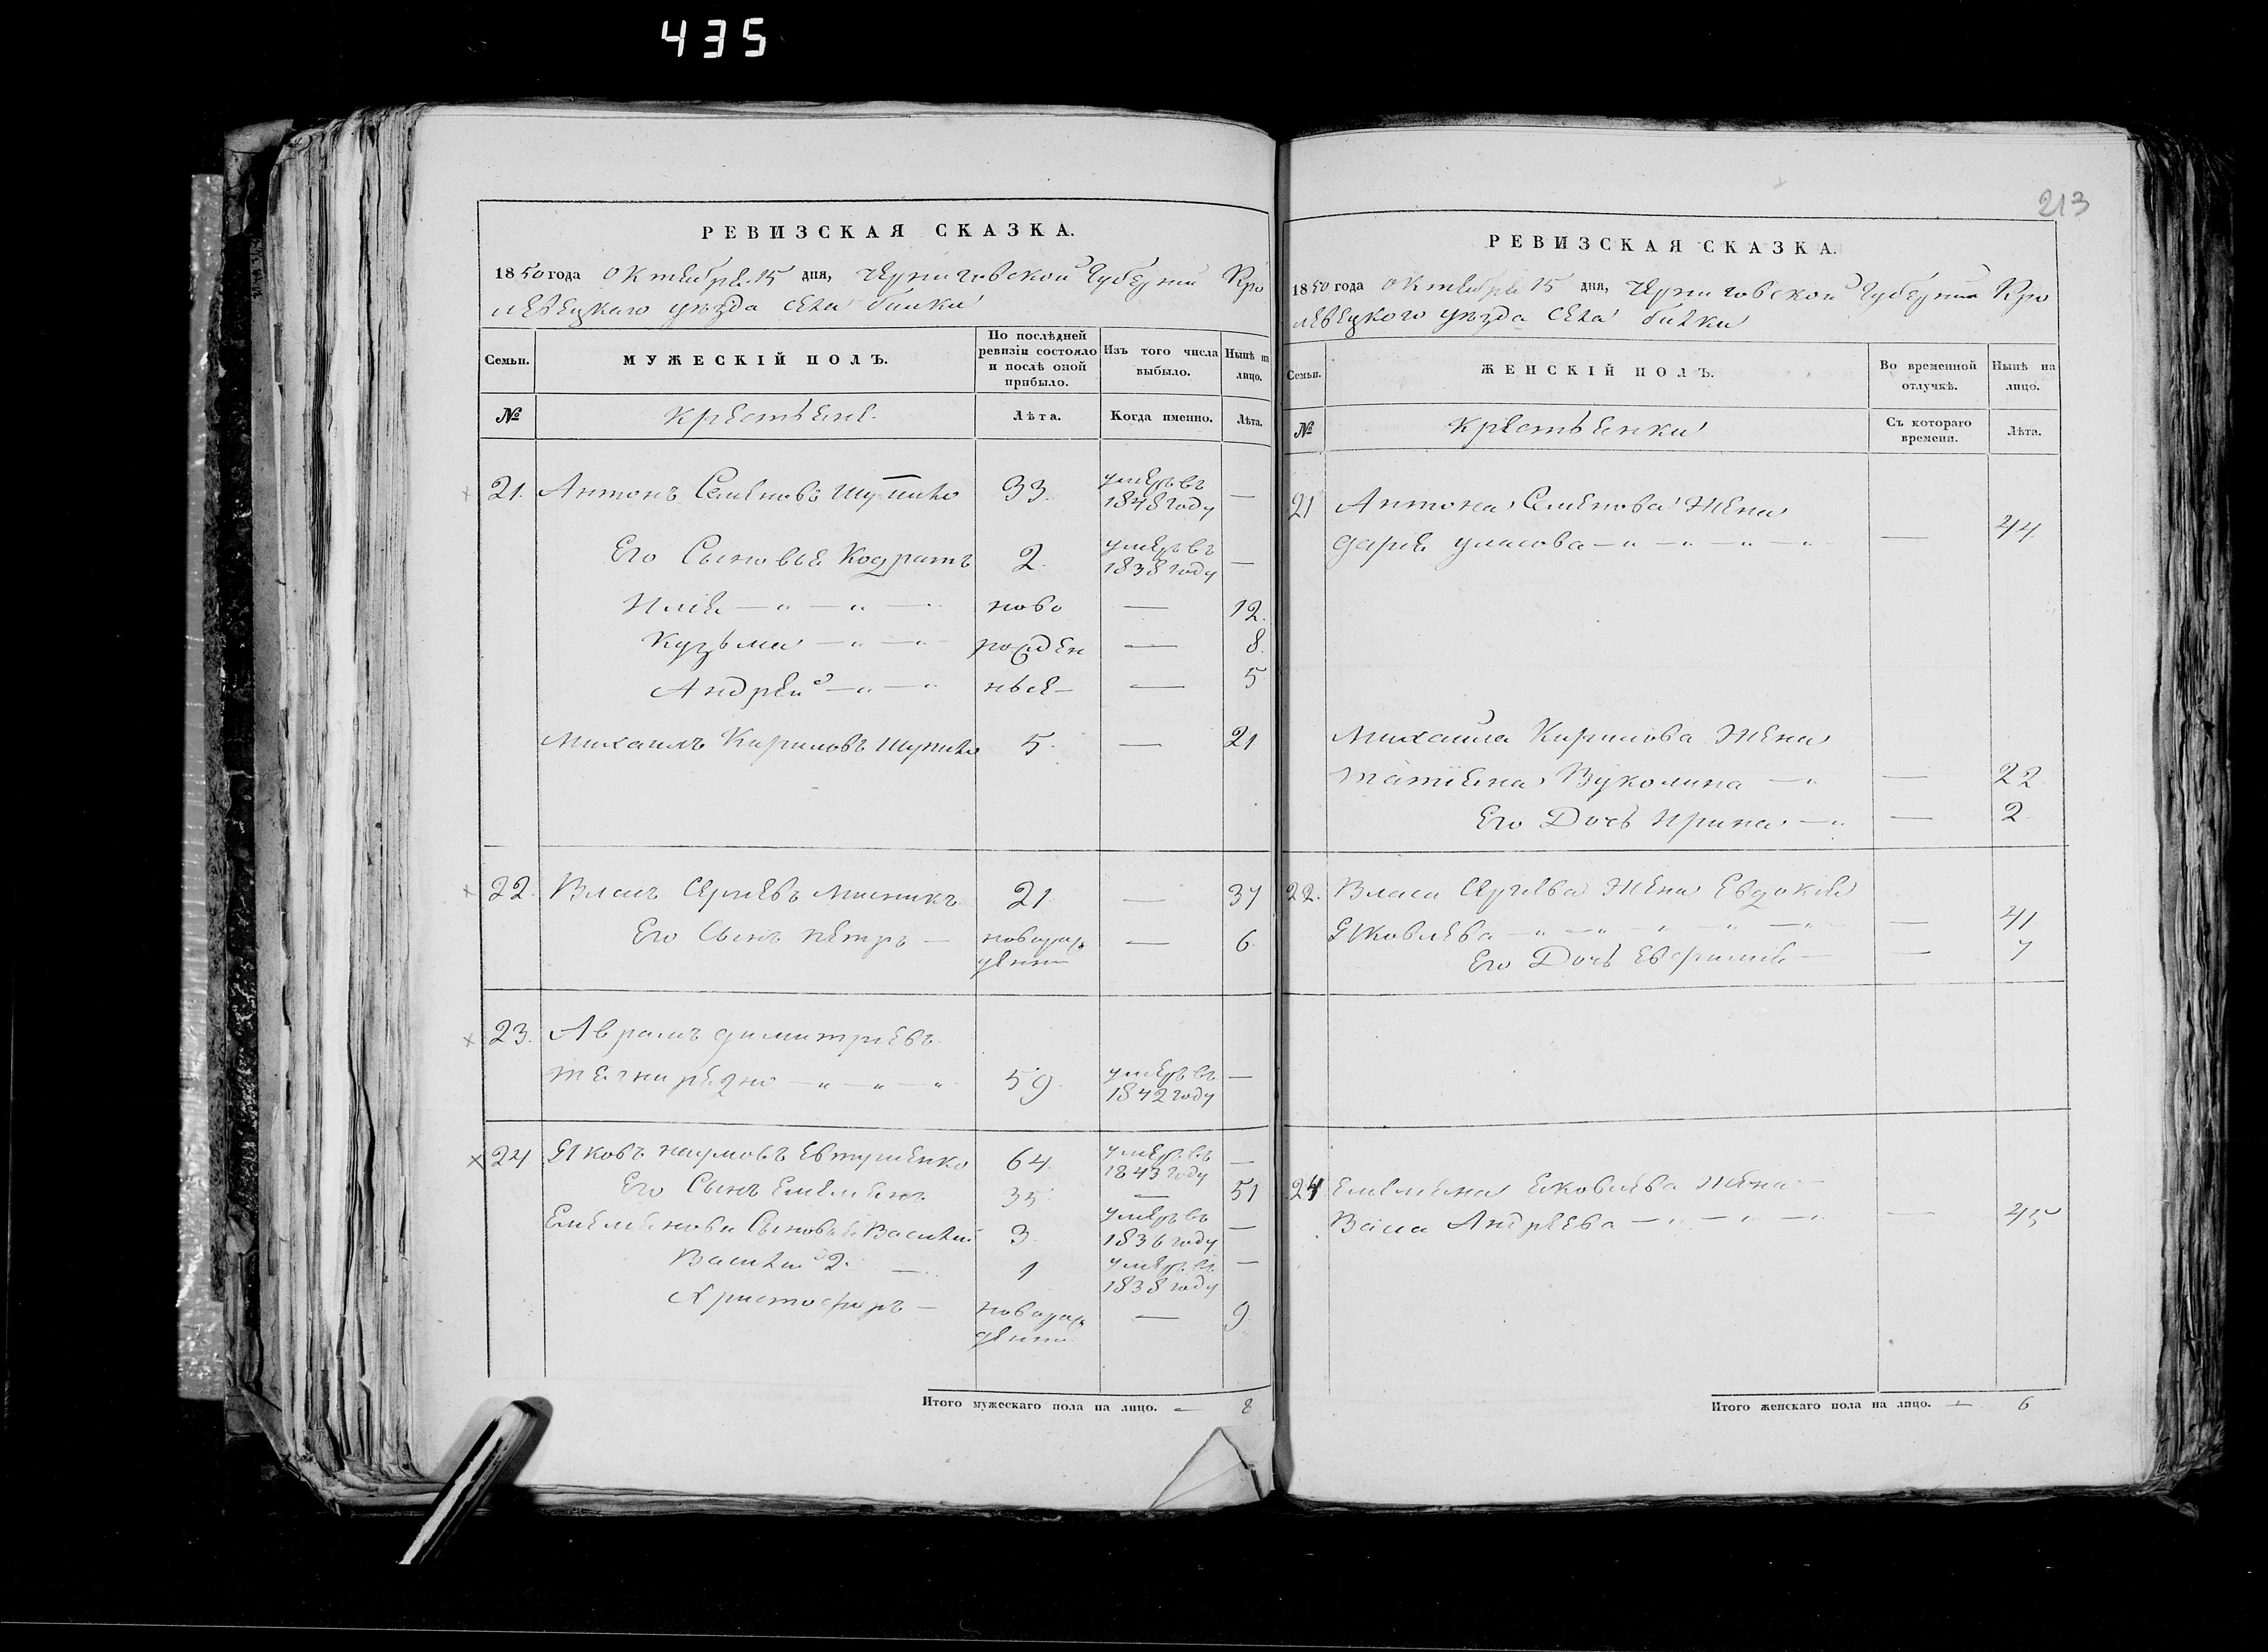 435
РЕВИЗСКАЯ СКАЗКА.
1850 года октебре 15 дня, Черниговской Губернии Кро
левецкаго уезда села билки
Семьи.
МУЖЕСКІЙ ПОЛЪ.
По послѣдней ревизіи состояло и послѣ оной прибыло.
Изъ того числа выбыло.
Нынѣ на лицо.
№
крестьене.
Лѣта.
Когда именно.
Лѣта.
21. Антонъ Семеновъ Шупико 33. умеръ въ 1848 году —
Его Сыновье Кодратъ 2. умеръ въ 1838 году —
Илие — „ — „ — ново — 12.
Кузьма — „ — „ рожден — 8.
Андрей — „ — „ ные — — 5
Михаилъ Кириловъ Шупико 5. — 21
22. Власъ Сергиевъ Мисникъ 21 — 37
Его Сынъ петръ — новорож денны — 6.
23. Аврамъ димитриевъ
— „ — „ — „ 59. умеръ въ 1842 году —
24 Яковъ наумовъ Евтушенко 64. умеръ въ 1843 году —
Его Сынъ Емелиенъ 35 — 51
Емелиенови Сыновье Василий 3. умеръ въ 1836 году —
Василий 2. — 1 умеръ въ 1838 году —
Христофоръ — новорож денны — 9.
Итого мужескаго пола на лицо. — 8
213
РЕВИЗСКАЯ СКАЗКА.
1850 года октебре 15 дня, Черниговской Губернии Кро
левецкого уезда села билки
Семьи.
ЖЕНСКІЙ ПОЛЪ.
Во временной отлучкѣ.
Нынѣ на лицо.
№
крестьенки
Съ котораго времени.
Лѣта.
21 Антона Семенова Жена
дарие уласова — „ — „ — „ — „ — 44
Михайла Кирилова Жена
татиена Вуколина — „ — 22
Его Дочь Ирина — „ — 2
22. Власа Сергиева Жена Евдокие
Яковлева — „ — „ — „ — „ — 41
Его Дочь Евфимие — — 7
24 Емелиена Ековлева Жена —
Васа Андреева — „ — „ — „ — 45
Итого женскаго пола на лицо. — 6